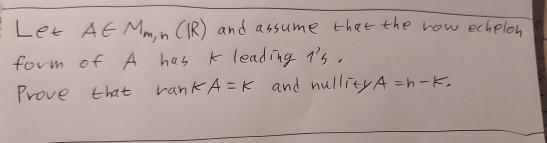 Let A ∈ M_{m,n} (ℝ) and assume that the row echelon
form of A has k leading 1's.
Prove that rank A = k and nullity A = n-k.